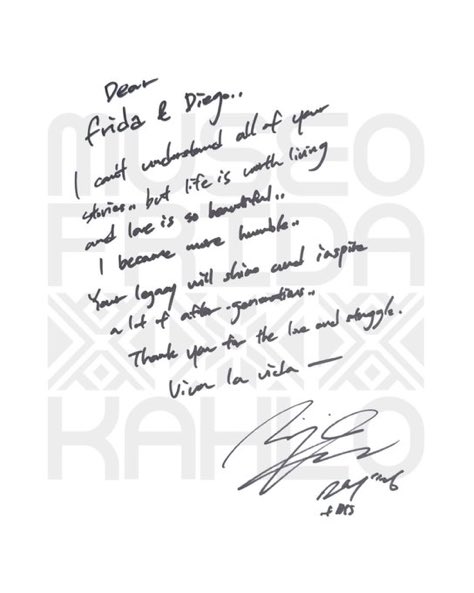 MUSEO
FRIDA
KAHLO
Dear
Frida & Diego..
I can't understand all of your
stories.. but life is worth living
and love is so beautiful..
I became more humble..
Your legacy will shine and inspire
a lot of after-generations..
Thank you for the love and struggle.
Viva la vida —
of BTS